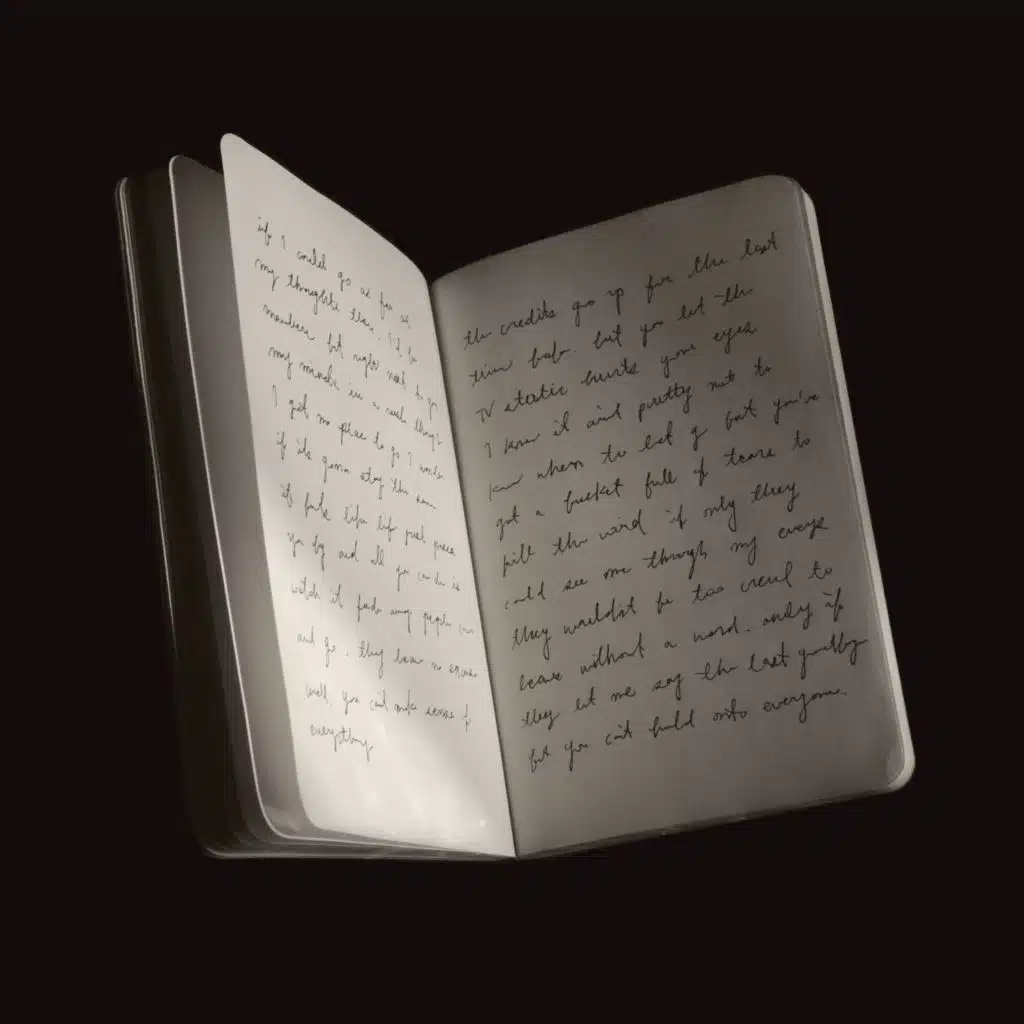 if I could go as far as
my thoughts there. I'd be
nowhere but right next to you
my minds in a rush things
I got no place to go I wonder
if its gonna stay the same
it feels like life just passes
you by and all you can do is
watch it fade away people come
and go. they leave no
well you can't make sense of
everything
the credits go up for the last
time babe. but you let the
TV static hurts your eyes
I know it aint pretty not to
know when to let go but you've
got a bucket full of tears to
fill the void if only they
could see me through my
they wouldn't be too creul to
leave without a word. only if
they let me say the last goodbye
but you can't hold onto everyone.